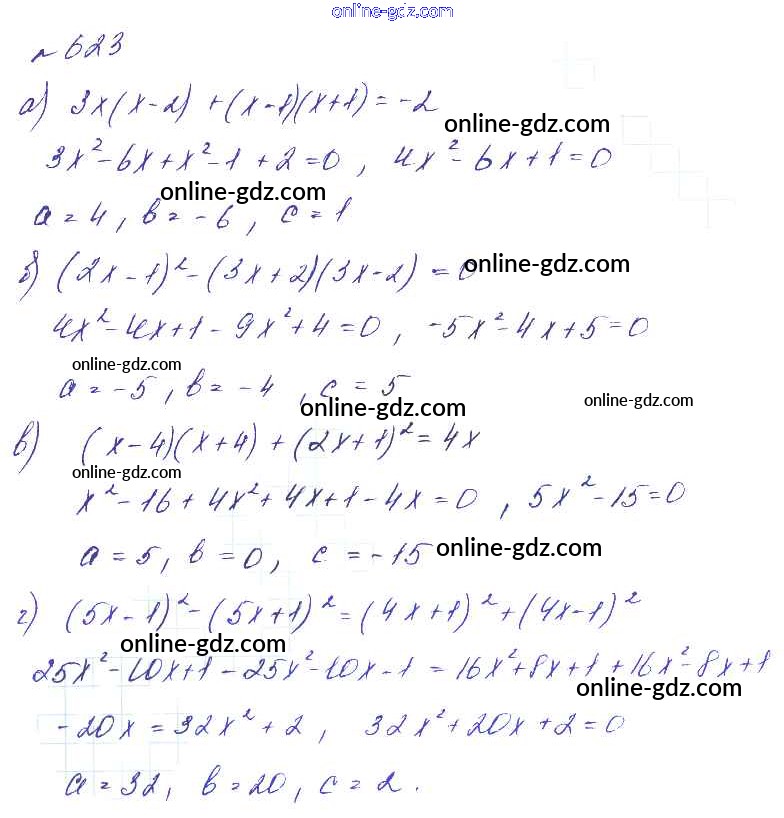 online-gdz.com
№ 623
а) 3x(x-2) + (x-1)(x+1) = -2
online-gdz.com
3x²-6x+x²-1+2=0, 4x²-6x+1=0
online-gdz.com
a=4, b=-6, c=1
б) (2x-1)²-(3x+2)(3x-2) = 0
online-gdz.com
4x²-4x+1-9x²+4=0, -5x²-4x+5=0
online-gdz.com
a=-5, b=-4, c=5
online-gdz.com
online-gdz.com
в) (x-4)(x+4)+(2x+1)²=4x
online-gdz.com
x²-16+4x²+4x+1-4x=0, 5x²-15=0
a=5, b=0, c=-15
online-gdz.com
г) (5x-1)²-(5x+1)²=(4x+1)²+(4x-1)²
online-gdz.com
25x²-10x+1-25x²-10x-1=16x²+8x+1+16x²-8x+1
online-gdz.com
-20x=32x²+2, 32x²+20x+2=0
a=32, b=20, c=2.